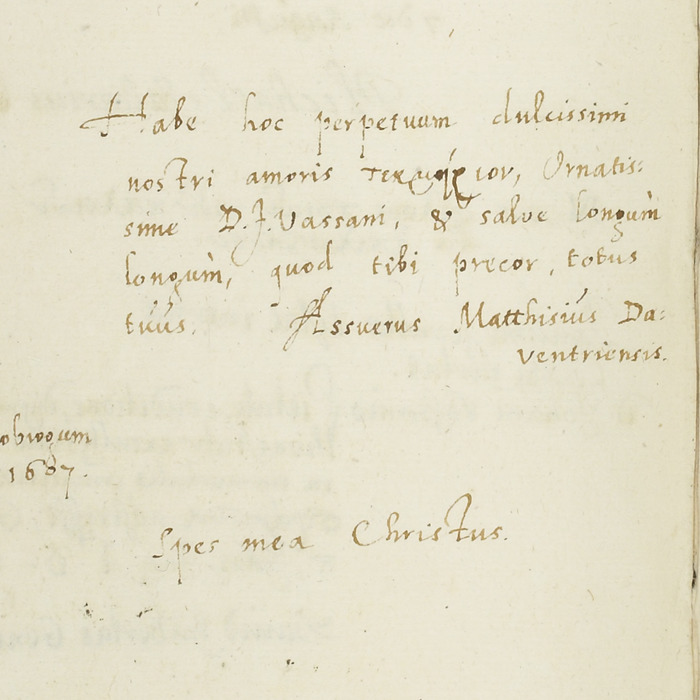 Habe hoc perpetuum dulcissimi
nostri amoris ior, Ornatis:
sime D. J. Vassani, & salve longùm
longùm, quod tibi precor, totus
tuus. Assuerus Matthisius Da:
ventriensis.
1607.
Spes mea Christus.